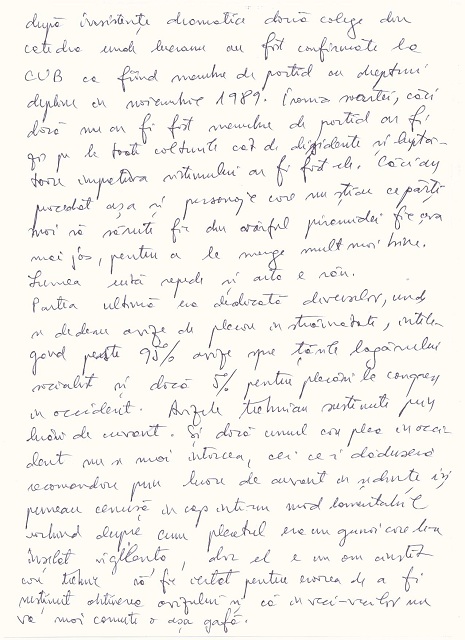 după insistențe dramatice două colege din
catedra unde lucram au fost confirmate la
CUB ca fiind membre de partid cu drepturi
depline în noiembrie 1989. Ironia soartei, căci
dacă nu au fi fost membre de partid au fi
zis pe la toate colțurile cât de disidente și luptă-
toare împotriva sistemului au fi fost ele. Căci au
procedat așa și personaje care nu știau ce părți
moi să sărute fie din vârful piramidei fie cea
mai jos, pentru a le merge mult mai bine.
Lumea uită repede și asta e rău.
Partea ultimă era dedicată diverselor, unde
se dedeau avize de plecare în străinătate, întele-
gând peste 95% avize spre țările lagărului
socialist și dacă 5% pentru plecări la congrese
în occident. Avizele trebuiau susținute prin
luări de cuvânt. Și dacă unul cum pleca în occi-
dent nu se mai întorcea, cei ce-i dăduseră
recomandare prin luare de cuvânt în ședințe își
puneau cenușă în cap într-un mod lamentabil
vorbind despre cum plecatul era un gunoi care le-a
înșelat vigilența, dar el e un om cinstit
care trebuie să fie iertat pentru eroarea de a fi
susținut obținerea avizului și că în veci-vecilor nu
va mai comite o așa gafă.